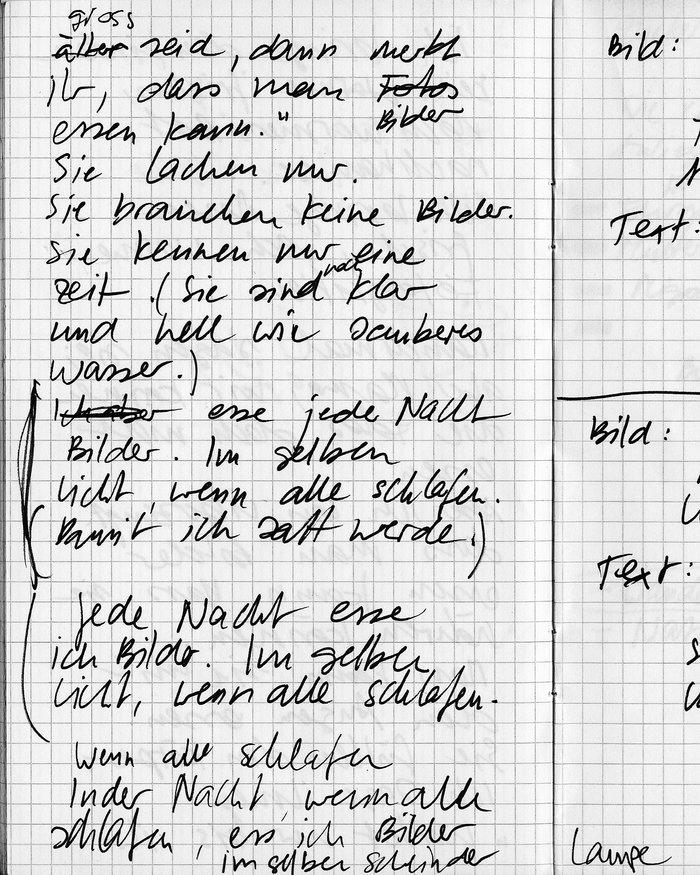 gross
älter seid, dann merkt
ihr, dass man Fotos
Bilder
essen kann."
Sie lachen nur.
Sie brauchen keine Bilder.
Sie kennen nur eine
zeit. (Sie sind noch klar
und hell wie sauberes
Wasser.)
Ich aber esse jede Nacht
Bilder. Im gelben
Licht, wenn alle schlafen.
Damit ich satt werde.)
Jede Nacht esse
ich Bilder. Im gelben
Licht, wenn alle schlafen.
Wenn alle schlafen
In der Nacht, wenn alle
schlafen, ess ich Bilder
im selber schein der
Bild:
Text:
Bild:
Text:
Lampe